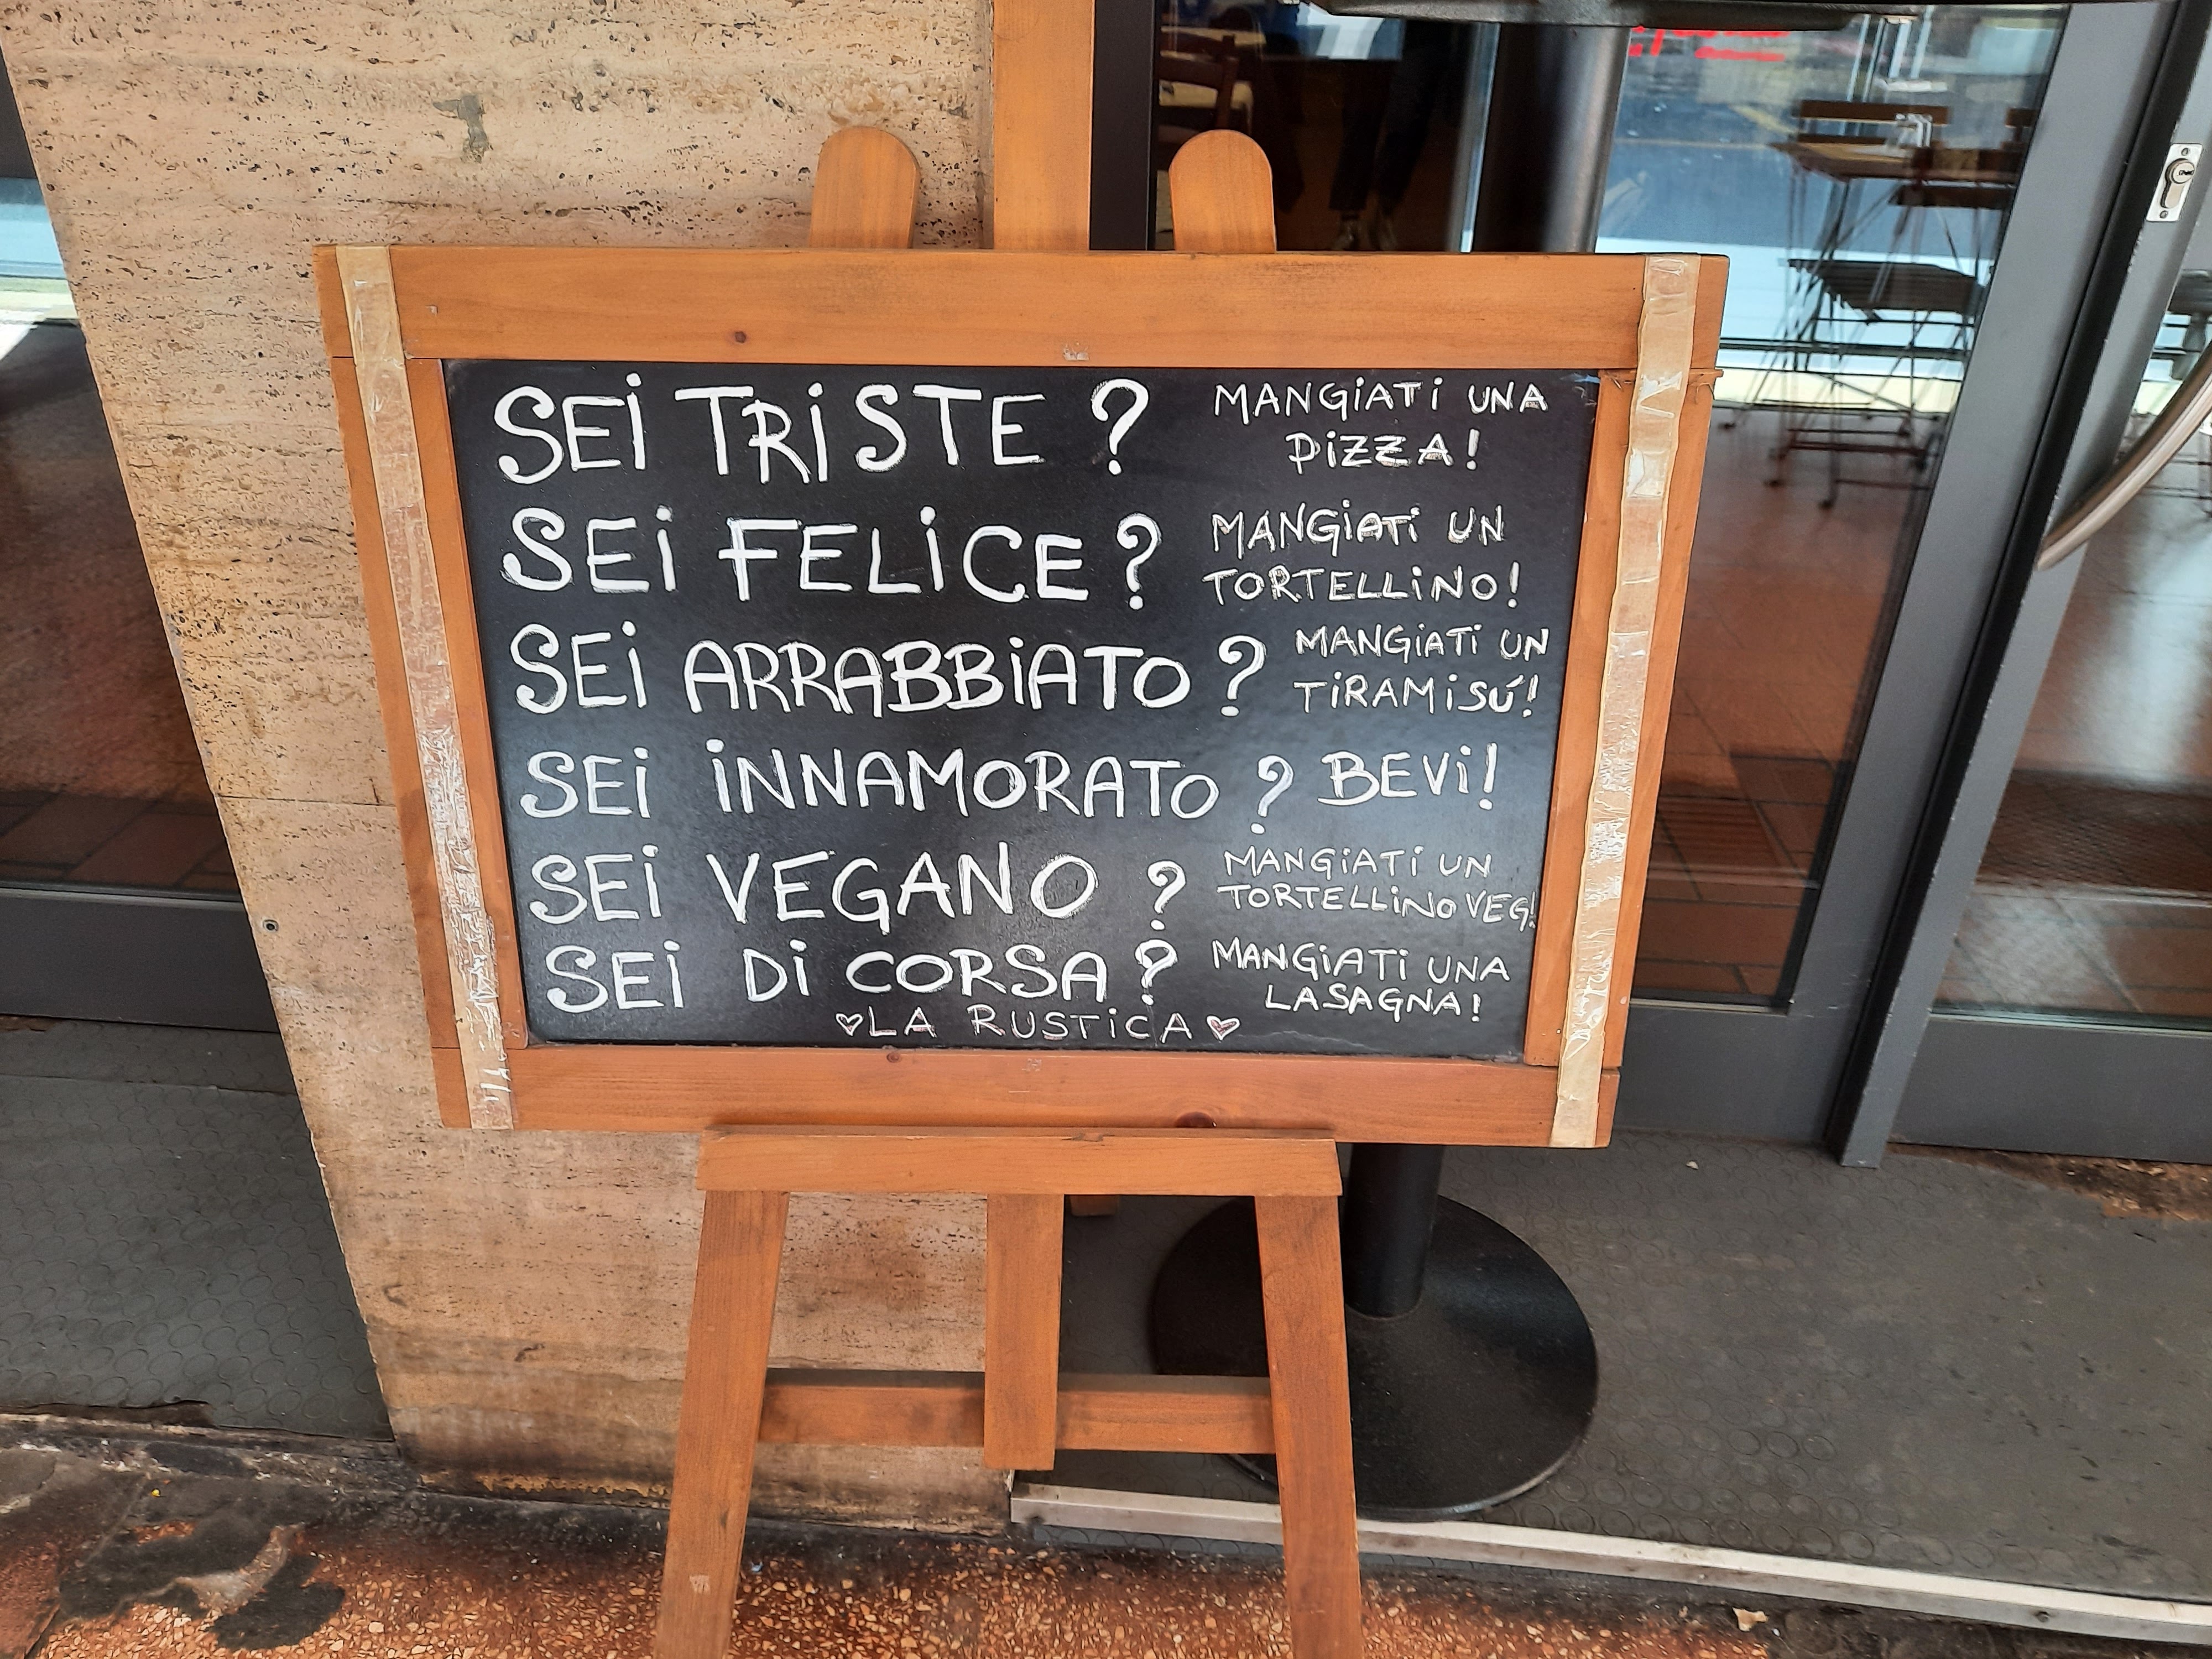 SEI TRISTE? MANGIATI UNA
PIZZA!
SEI FELICE? MANGIATI UN
TORTELLINO!
SEI ARRABBIATO? MANGIATI UN
TIRAMISÚ!
SEI INNAMORATO? BEVI!
SEI VEGANO? MANGIATI UN
TORTELLINO VEG!
SEI DI CORSA? MANGIATI UNA
LASAGNA!
♡LA RUSTICA♡